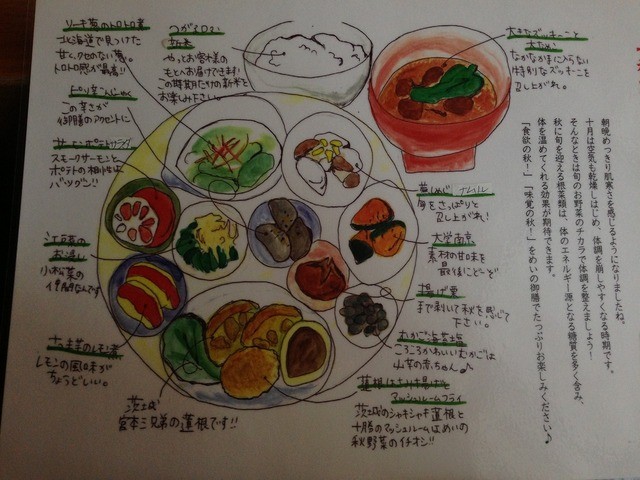 ソーキ葱のトロトロ煮
北海道で見つけた
甘くクセのない葱。
トロトロ感が最高!!
ピリ辛こんにゃく
この辛さが
御膳のアクセントに
サーモンポテトサラダ
スモークサーモンと
ポテトの相性は
バツグン!!
江戸菜の
お浸し
小松菜の
さつま芋のレモン煮
レモンの風味が
ちょうどいい。
つがるロマン
新米
やっとお客様の
もとへお届けできます!
この時期だけの新米を
お楽しみ下さい。
大きなズッキーニと
なかなか手に入らない
特別なズッキーニを
召し上がれ。
ナムル
召し上がれ!
大学南京
素材の甘味を
最後にどーぞ
揚げ栗
まで剥いて秋を感じて
下さい。
むかご
ころころかわいいむかごは
山芋の赤ちゃん♪
蓮根はさみ揚げと
マッシュルームフライ
茨城のシャキシャキ蓮根と
十勝のマッシュルームはめいの
秋野菜のイチオシ!!
茨城
宮本三兄弟の蓮根です!!
朝晩めっきり肌寒さを感じるようになりましたね。
十月は空気も乾燥しはじめ、体調を崩しやすくなる時期です。
そんなときは旬のお野菜のチカラで体調を整えましょう!
秋に旬を迎える根菜類は、体のエネルギー源となる糖質を多く含み、
体を温めてくれる効果が期待できます。
「食欲の秋!」「味覚の秋!」をめいの御膳でたっぷりお楽しみください♪